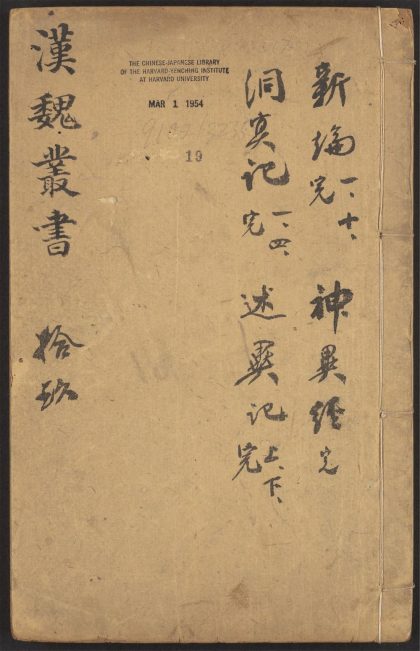 新論 一、十、完 神異經 完
洞冥記 一、四、完 述異記 上、下、完
THE CHINESE-JAPANESE LIBRARY
OF THE HARVARD-YENCHING INSTITUTE
AT HARVARD UNIVERSITY
MAR 1 1954
19
漢魏叢書 拾玖